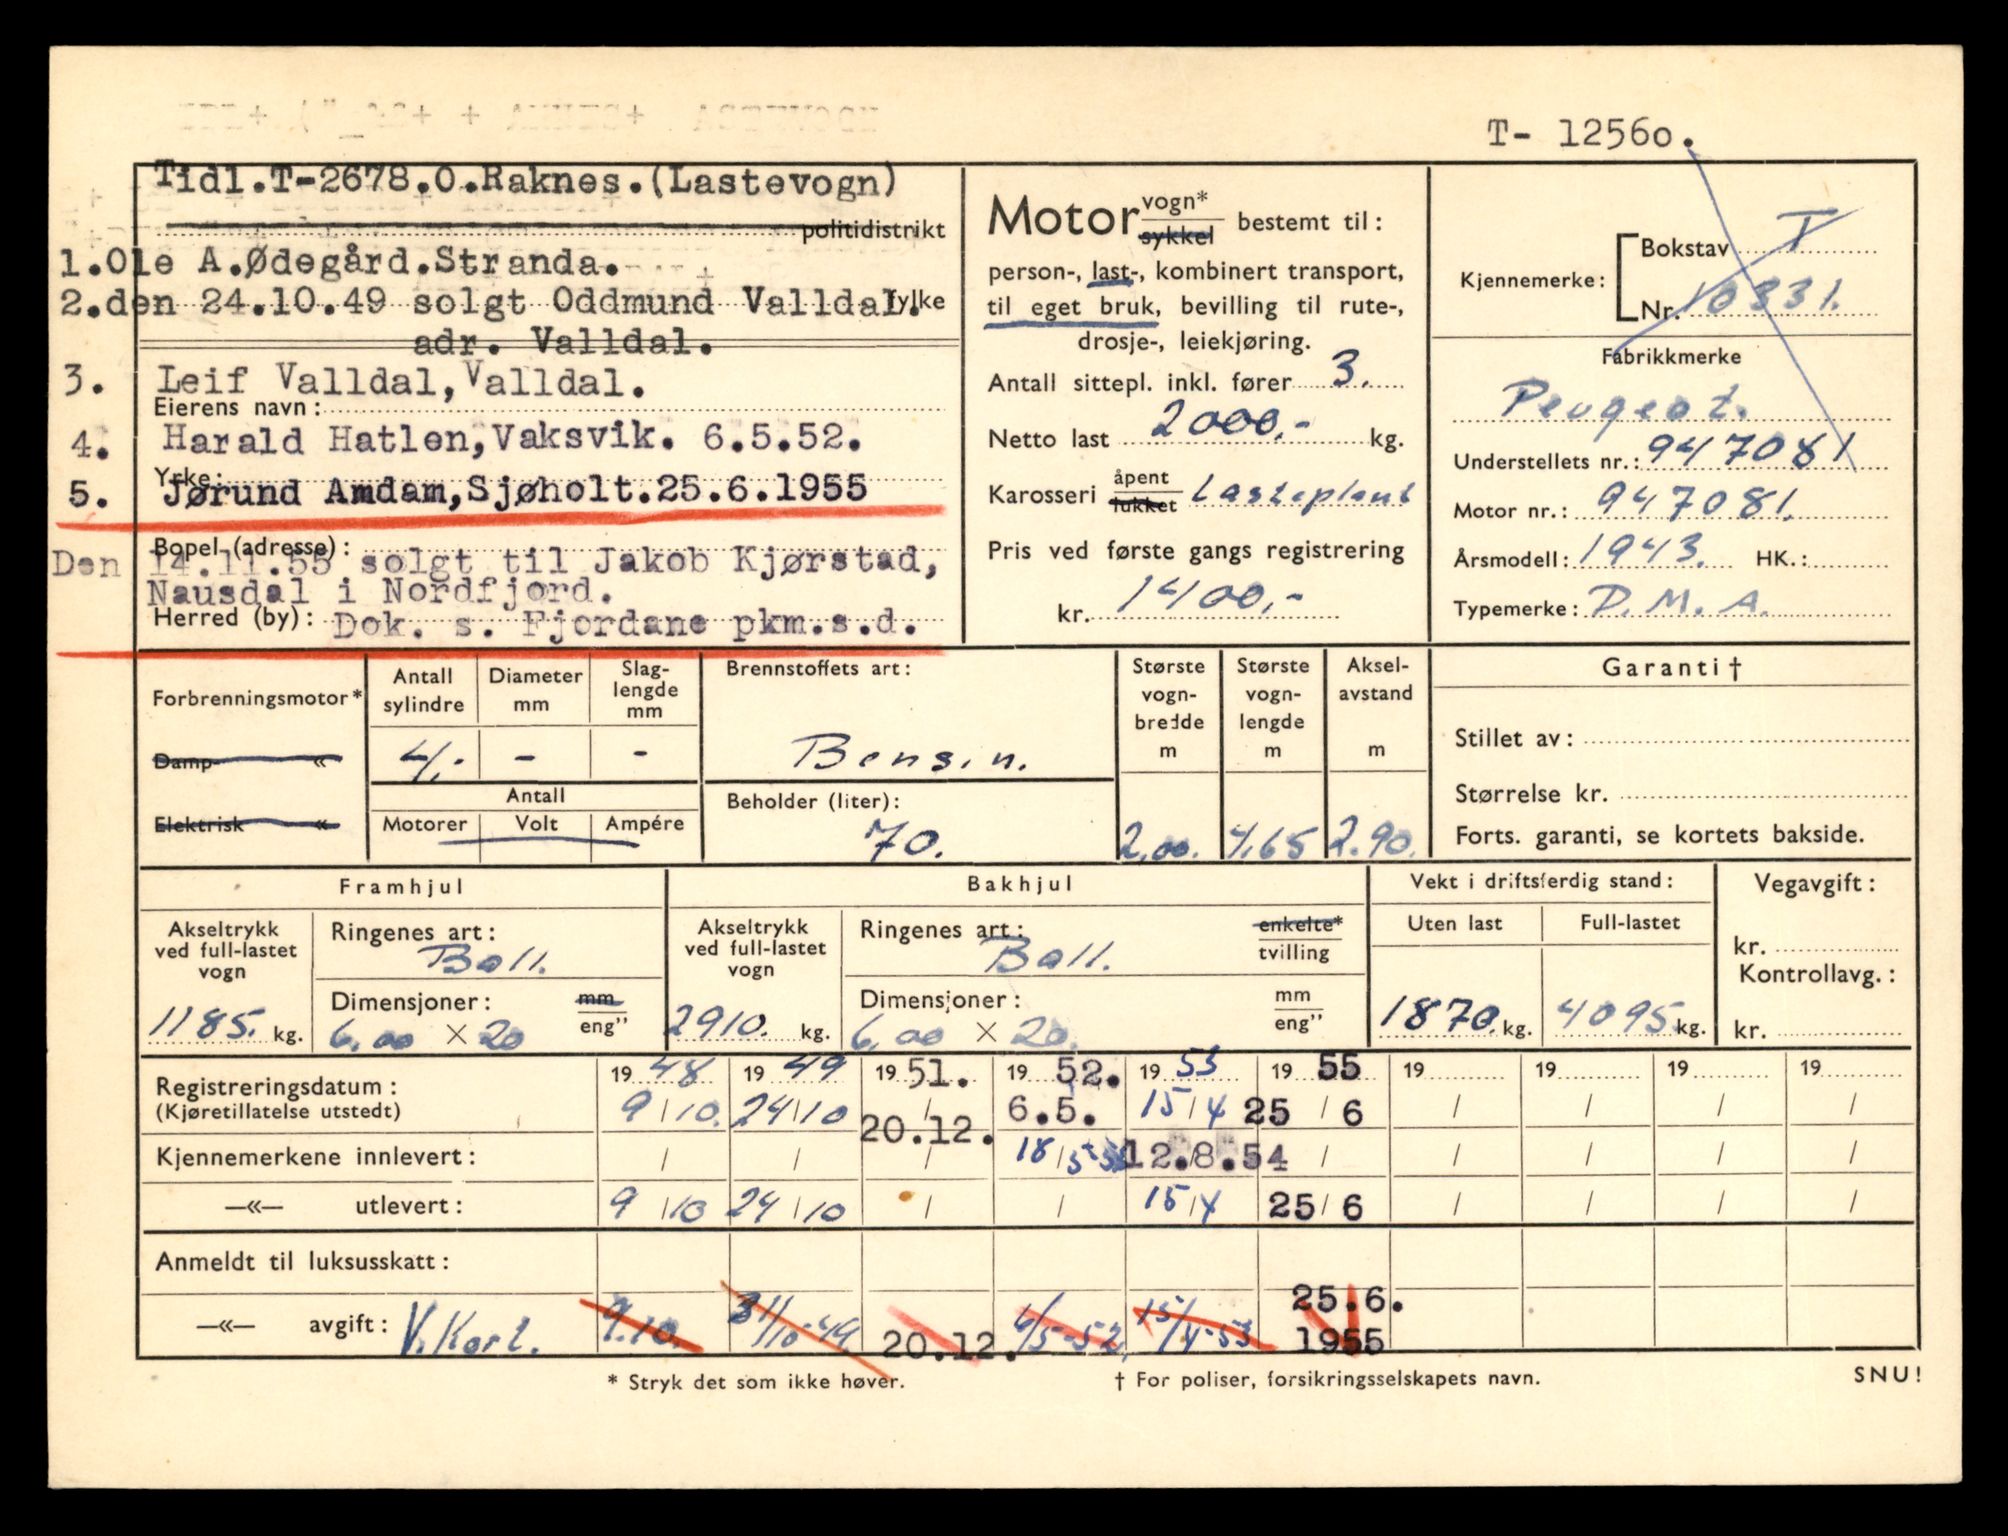 T- 1256o.
Tidl.T-2678.O.Raknes.(Lastevogn)
politidistrikt
1.Ole A.Ødegård.Stranda.
2.den 24.10.49 solgt Oddmund Valldal.
fylke
adr. Valldal.
3. Leif Valldal,Valldal.
Eierens navn:
4. Harald Hatlen,Vaksvik. 6.5.52.
Yrke:
5. Jørund Amdam,Sjøholt.25.6.1955
Bopel (adresse):
Den 14.11.55 solgt til Jakob Kjørstad,
Nausdal i Nordfjord.
Herred (by): Dok. s. Fjordane pkm.s.d.
Motor vogn* sykkel bestemt til:
person-, last-, kombinert transport,
til eget bruk, bevilling til rute-,
drosje-, leiekjøring.
Antall sittepl. inkl. fører 3.
Netto last 2000,- kg.
Karosseri åpent lukket Lasteplant
Pris ved første gangs registrering
kr. 1400,-
Kjennemerke: Bokstav T
Nr. 10331.
Fabrikkmerke
Peugeot.
Understellets nr.: 947081
Motor nr.: 947081.
Årsmodell: 1943. HK.:
Typemerke: D.M.A.
Forbrenningsmotor*
Damp- «
Elektrisk «
Antall sylindre
Diameter mm
Slag-lengde mm
4,- - -
Antall
Motorer Volt Ampére
Brennstoffets art:
Bensin.
Beholder (liter):
70.
Største vogn-bredde m
2,00.
Største vogn-lengde m
4,65
Aksel-avstand m
2.90.
Garanti †
Stillet av:
Størrelse kr.
Forts. garanti, se kortets bakside.
Framhjul
Akseltrykk ved full-lastet vogn
1185. kg.
Ringenes art:
Ball.
Dimensjoner: mm eng”
6,00 × 20
Bakhjul
Akseltrykk ved full-lastet vogn
2910. kg.
Ringenes art: enkelte* tvilling
Ball.
Dimensjoner: mm eng”
6,00 × 20.
Vekt i driftsferdig stand:
Uten last Full-lastet
1870. kg. 4095. kg.
Vegavgift:
kr.
Kontrollavg.:
kr.
Registreringsdatum: 19 48 19 49 19 51. 19 52. 19 53 19 55 19 19 19 19
(Kjøretillatelse utstedt) 9/10. 24/10 / 6.5. 15/4 25/6 / / / /
20.12.
Kjennemerkene innlevert: / / / 18/5-53 12.8.54 / / / / /
—«— utlevert: 9/10 24/10 / / 15/4 25/6 / / / /
Anmeldt til luksusskatt:
—«— avgift: V.Kort. 9.10. 31/10-49. 20.12. 6/5-52. 15/4-53 25.6. 1955
* Stryk det som ikke høver.
† For poliser, forsikringsselskapets navn.
SNU!